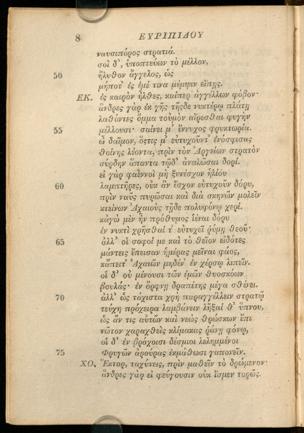 8 ΕΥΡΙΠΙΔΟΥ
ναυσιπόρος στρατιά.
σοὶ δ', ὑποπτεύων τὸ μέλλον,
50 ἤλυθον ἄγγελος, ὡς
μήποτ' ἐς ἐμέ τινα μέμψιν εἴπῃς.
ΕΚ. ἐς καιρὸν ἥκεις, καίπερ ἀγγέλλων φόβον·
ἄνδρες γὰρ ἐκ γῆς τῆςδε νυκτέρῳ πλάτῃ
λαθόντες ὄμμα τοὐμὸν ἀρεῖσθαι φυγὴν
55 μέλλουσι· σαίνει μ' ἔννυχος φρυκτωρία.
ὦ δαῖμον, ὅςτις μ' εὐτυχοῦντ' ἐνόσφισας
θοίνης λέοντα, πρὶν τὸν Ἀργείων στρατὸν
σύρδην ἅπαντα τῷδ' ἀναλῶσαι δορί.
εἰ γὰρ φαεννοὶ μὴ ξυνέσχον ἡλίου
60 λαμπτῆρες, οὐκ ἂν ἔσχον εὐτυχοῦν δόρυ,
πρὶν ναῦς πυρῶσαι καὶ διὰ σκηνῶν μολεῖν
κτείνων Ἀχαιοὺς τῇδε πολυφόνῳ χερί.
κἀγὼ μὲν ἦν πρόθυμος ἰέναι δόρυ
ἐν νυκτὶ χρῆσθαί τ' εὐτυχεῖ ῥύμῃ θεοῦ·
65 ἀλλ' οἱ σοφοί με καὶ τὸ θεῖον εἰδότες
μάντεις ἔπεισαν ἡμέρας μεῖναι φάος,
κἄπειτ' Ἀχαιῶν μηδέν' ἐν χέρσῳ λιπεῖν.
οἱ δ' οὐ μένουσι τῶν ἐμῶν θυοσκόων
βουλάς· ἐν ὄρφνῃ δραπέτης μέγα σθένει.
70 ἀλλ' ὡς τάχιστα χρὴ παραγγέλλειν στρατῷ
τεύχη πρόχειρα λαμβάνειν λῆξαί θ' ὕπνου,
ὡς ἄν τις αὐτῶν καὶ νεὼς θρώσκων ἔπι
νῶτον χαραχθεὶς κλίμακας ῥάνῃ φόνῳ,
οἱ δ' ἐν βρόχοισι δέσμιοι λελημμένοι
75 Φρυγῶν ἀρούρας ἐκμάθωσι γαπονεῖν.
ΧΟ. Ἕκτορ, ταχύνεις, πρὶν μαθεῖν τὸ δρώμενον·
ἄνδρες γὰρ εἰ φεύγουσιν οὐκ ἴσμεν τορῶς.